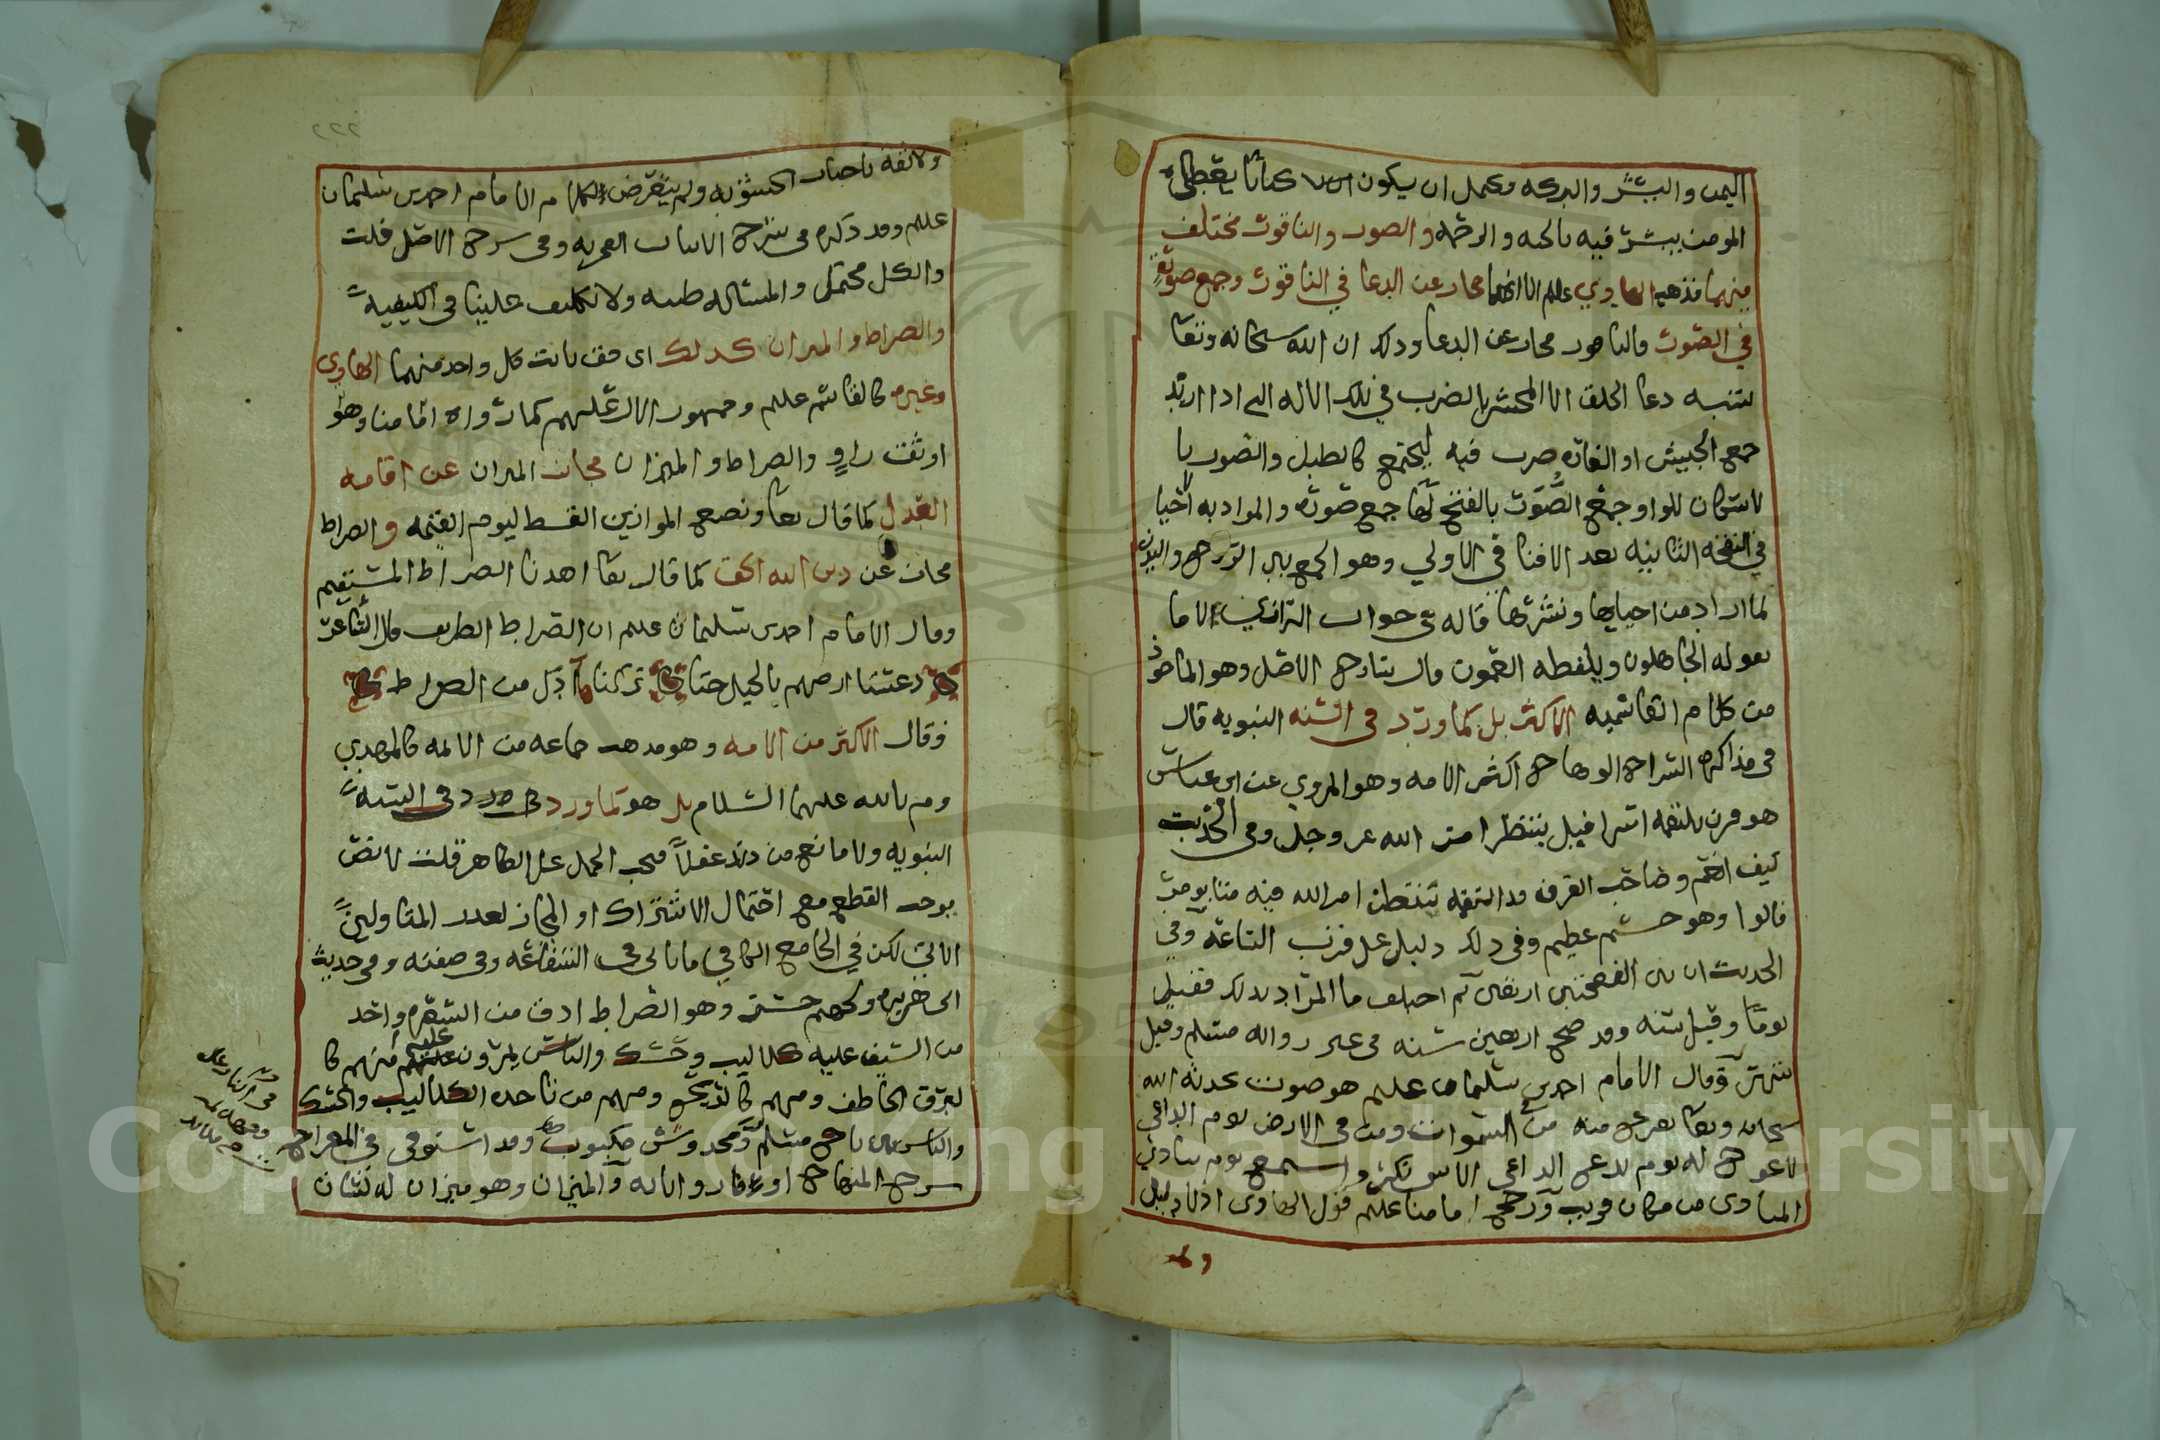 اليمن والبشر والبركه ويحتمل ان يكون كتابا يعطاه
المومن يبشر فيه بالجنه والرحمه والصور والناقور مختلف
فيهما فذهب الهادي علم الا انهما مجاز عن الدعا في الناقور وجمع صورة
في الصور فالناقور مجاز عن الدعا وذلك ان الله سبحانه وتعا
شبه دعا الخلق الا المحشر بالضرب في تلك الاله التي اذا اريد
جمع الجيش او الغاره ضرب فيه ليجتمع كالطبل والصور با
لاسكان للواو جمع الصور بالفتح لها جمع صوره والمراد به احيا
في النفخه الثانيه بعد الافنا في الاولي وهو الجمع بين الروح والبدن
لما اراد من احيايها ونشرها قاله في جواب الرازي لا ما
يقوله الجاهلون ويلفظه العمون قال شارح الاصل وهو الماخوذ
من كلام القاسميه الاكثر بل كما ورد في السنه النبويه قال
في مذاكره السراج الوهاج اكثر الامه وهو المروي عن ابن عباس
هو قرن يلتقمه اسرافيل ينتظر امر الله عز وجل وفي الحديث
كيف انعم وصاحب القرن قد التقمه ينتظر امر الله فيه متا يومر
قالوا وهو جسم عظيم وفي ذلك دليل على قرب الساعه وفي
الحديث ان بين النفختين اربعين ثم اختلف ما المراد بذلك فقيل
يوما وقيل سنه وقد صح اربعين سنه في غير رواله مسلم وقيل
شهر وقال الامام احمد بن سليمان علم هو صوت يحدثه الله
سبحانه وتعا يفزع منه من في السموات ومن في الارض يوم الداعي
لا عوج له يوم يدعو الداعي الا شي نكر واستمع يوم ينادي
المنادي من مكان قريب ورجح امامنا علم قول الهادي اذ لا دليل
ولا
٢٢٢
ولا ثقه باخبار الحشويه ولم يتعرض لكلام الامام احمد بن سليمان
علم وقد ذكره في شرح الابيات الفخريه وفي شرح الاصل قلت
والكل محتمل والمساله ظنيه ولا تكليف علينا في الكيفيه
والصراط والميزان كذلك اي مختلف كل واحد منهما الهادي
وغيره كالقاسم علم وجمهور الال علهم كما رواه امامنا وهو
اوثق راو والصراط والميزان مجاز الميزان عن اقامه
العدل كما قال تعا ونضع الموازين القسط ليوم القيمه والصراط
مجاز عن دين الله الحق كما قال تعا اهدنا الصراط المستقيم
وقال الامام احمد بن سليمان علم ان الصراط الطريق قال الشاعر
دعسنا ارضهم بالخيل حتا تركناها اذل من الصراط
وقال الاكثر من الامه وهو مذهب جماعه من الائمه كالمهدي
وم بالله عليهما السلام بل هو كما ورد في السنه
النبويه ولا مانع من ذلك عقلا فيجب الحمل على الظاهر قلت لا نص
يوجب القطع مع احتمال الاشتراك او المجاز لعدد المتاولين
الاتي لكن في الجامع الكافي ما ياتي في الشفاعه وفي صفته وفي حديث
ابي هريره ولجهنم جسر وهو الصراط ادق من الشعره واحد
من السيف عليه كلاليب وحسك والناس يمرون عليه منهم كا
لبرق الخاطف ومنهم كالريح ومنهم من تاخذه الكلاليب والحسك
والناس بين ناج مسلم ومخدوش ومكبوب وقد استوفى في المعراج
شرح المنهاج اوفا رواياته والميزان وهو ميزان له لسان
في النار على